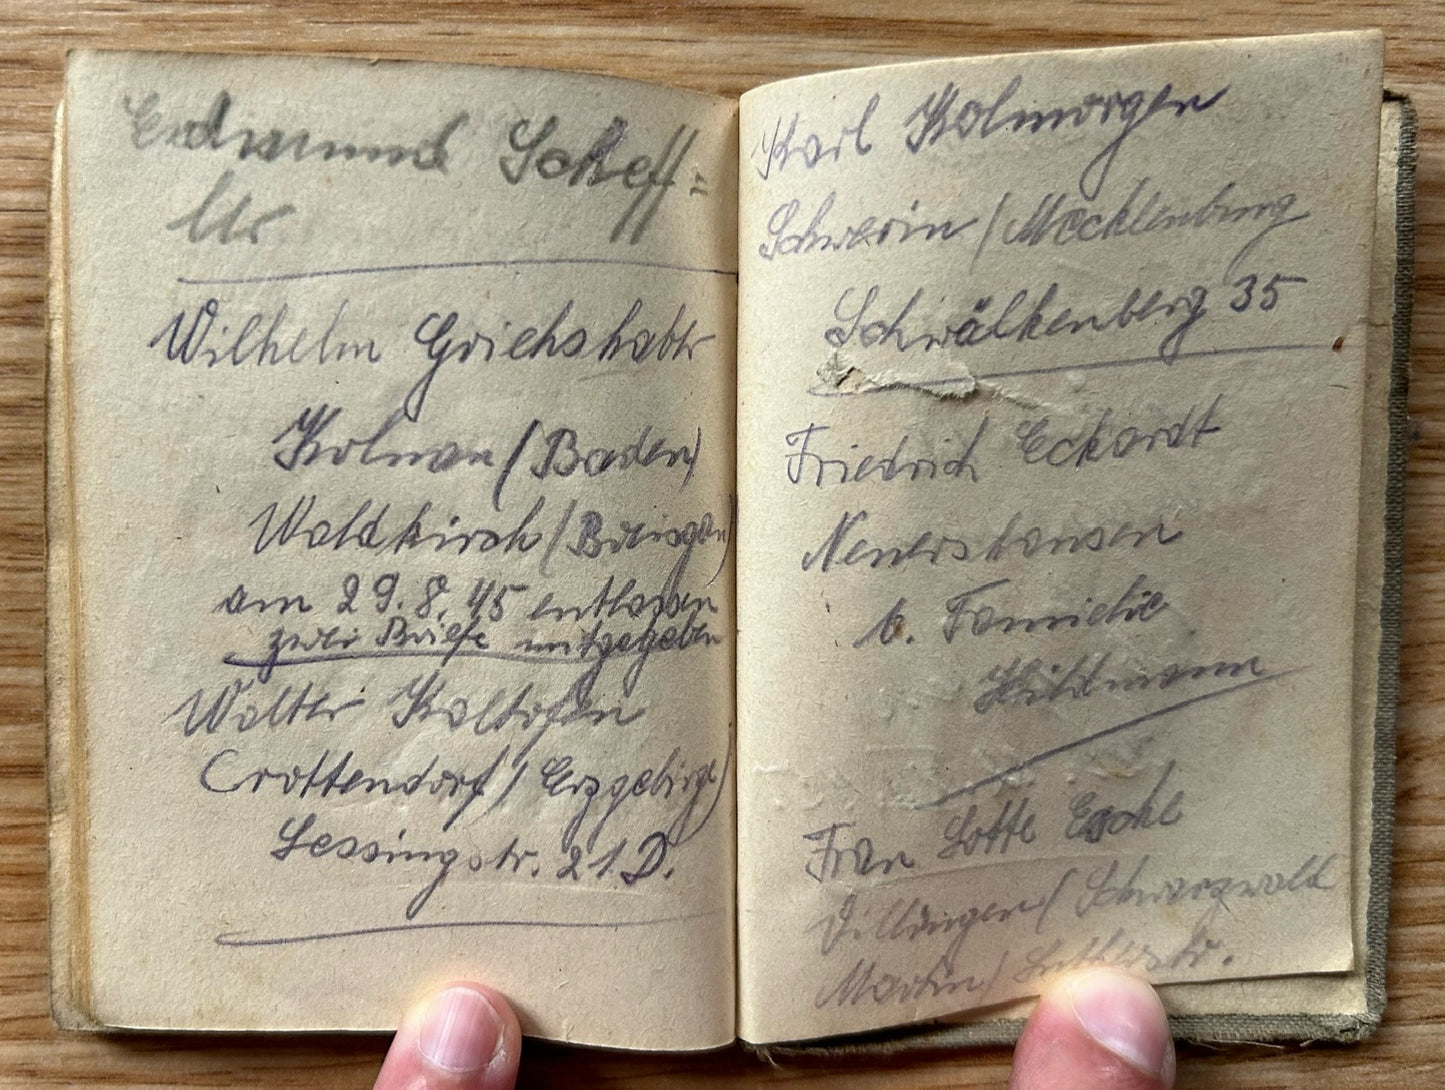 Edmund Scheff=
ler
Wilhelm Grieshaber
Kolnau (Baden)
Waldkirch (Breisgau)
am 29.8.45 entlassen
zwei Briefe mitgegeben
Walter Kaltofen
Crottendorf / Erzgebirge)
Lessingstr. 21D.
Karl Kolmorgen
Schwerin / Mecklenburg
Schwälkenberg 35
Friedrich Eckardt
Neuershausen
b. Familie
Hildmann
Frau Lotte Esche
Villingen / Schwarzwald
Martin / Lutherstr.